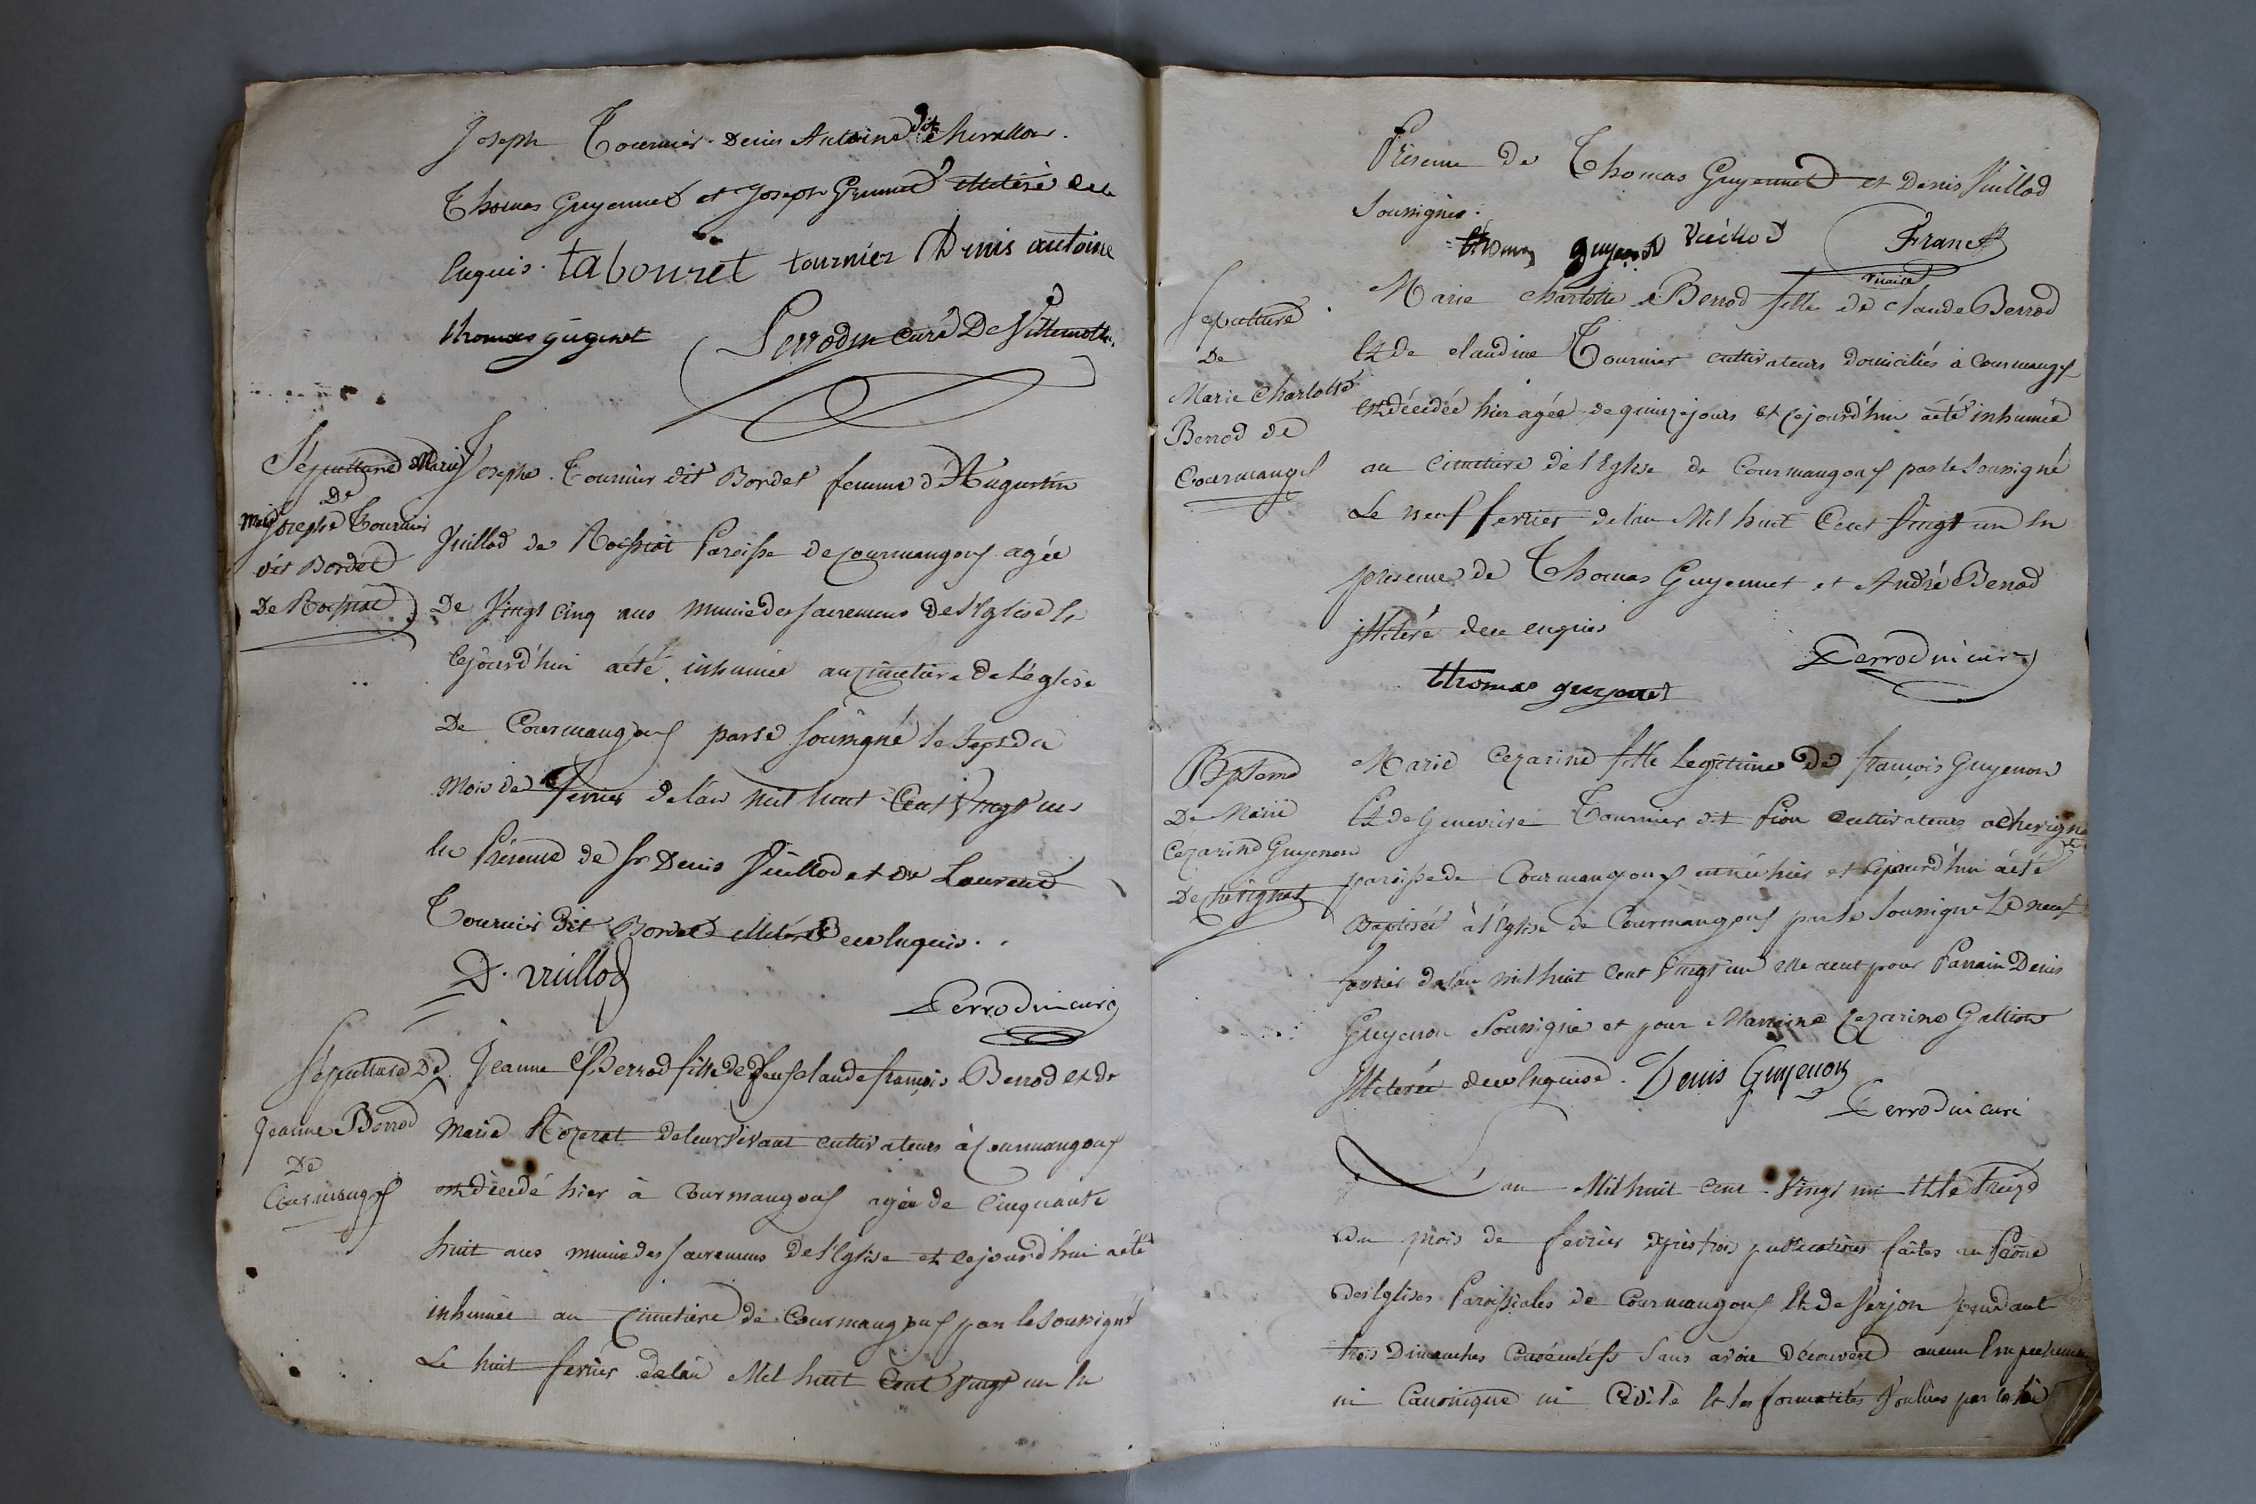 Joseph Tournier Denis Antoine dit
Thomas Guyennet et Joseph illiteré de ce
Enquis. tabouret tournier Denis antoine
thomas guyenet Perrodin curé De Villemotte.
Sépulture
De
Marie Josephe Tournier
dit Bordet
De Roissiat
Marie Josephe Tournier dit Bordet femme d'Augustin
Vuillod de Roissiat Paroisse de courmangoux agée
De Vingt cinq ans munie des sacremens de l'Eglise Et
Cejourd'hui a été inhumée au cimetiere de l'église
De Courmangoux par le soussigné le sept du
Mois de fevrier de l'an mil huit Cent Vingt un
En Présence de Sr Denis Vuillod et de Laurent
Tournier dit Bordet illiteré de ce Enquis.
D. vuillod
Perrodin curé
Sépulture De
Jeanne Berrod
De
Courmangoux
Jeanne Berrod fille de feu Claude françois Berrod et de
Marie Rozerat de leur Vivant cultivateurs à Courmangoux
est décedé hier à Courmangoux agée de Cinquante
huit ans munie des sacremens de l'Eglise et cejourd'hui a été
inhumée au Cimetiere de Courmangoux par le soussigné
Le huit fevrier de l'an Mil huit Cent Vingt un En
Présence de Thomas Guyennet et Denis Vuillod
Soussignés.
thomas guyenet Vuillod Franc
vicaire
Sepulture
De
Marie Charlotte
Berrod de
Courmangoux
Marie Charlotte Berrod fille de Claude Berrod
Et de claudine Tournier cultivateurs domiciliés à Courmangoux
est décédée hier agée de quinze jours et cejourd'hui a été inhumée
au Cimetiere de l'Eglise de Courmangoux par le Soussigné
Le neuf fevrier de l'an Mil huit Cent Vingt un En
presence de Thomas Guyennet et André Berrod
illiteré de ce enquis
Perrodin curé
thomas guyenet
Bapteme
De Marie
Cezarine Guyenon
De Chevignat
Marie Cezarine fille Legitime de françois Guyenon
Et de Genevieve Tournier dit fion Cultivateurs a Chevignat
paroisse de Courmangoux est née hier et cejourd'hui a été
Baptisée à l'Eglise de Courmangoux par le Soussigné Le neuf
fevrier de l'an mil huit Cent Vingt un elle a eut pour Parrain Denis
Guyenon Soussigné et pour Marraine Cezarine Gallion
Illiterée de ce Enquise. Denis Guyenon
Perrodin curé
L'an Mil huit Cent Vingt un Et le Treize
du mois de fevrier après trois publications faites au Prône
des Eglises Paroissiales de Courmangoux Et de Verjon pendant
trois Dimanches Consécutifs Sans avoir découvert aucun Empechement
ni Canonique ni Civile Et les formalités Voulues par la loi